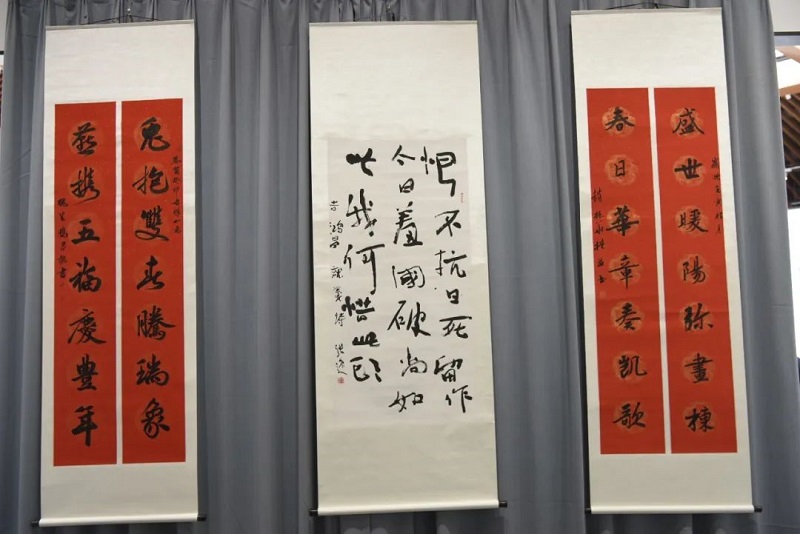 兔抱雙喜騰瑞象
燕携五福慶豊年
恨不抗日死留作
今日羞國破尚如
此我何惜此頭
吉鴻昌就義詩
盛世暖陽弥畫棟
春日華章奏凱歌